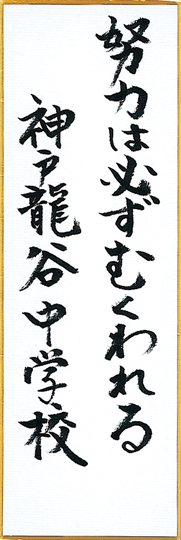 努力は必ずむくわれる
神戸龍谷中学校